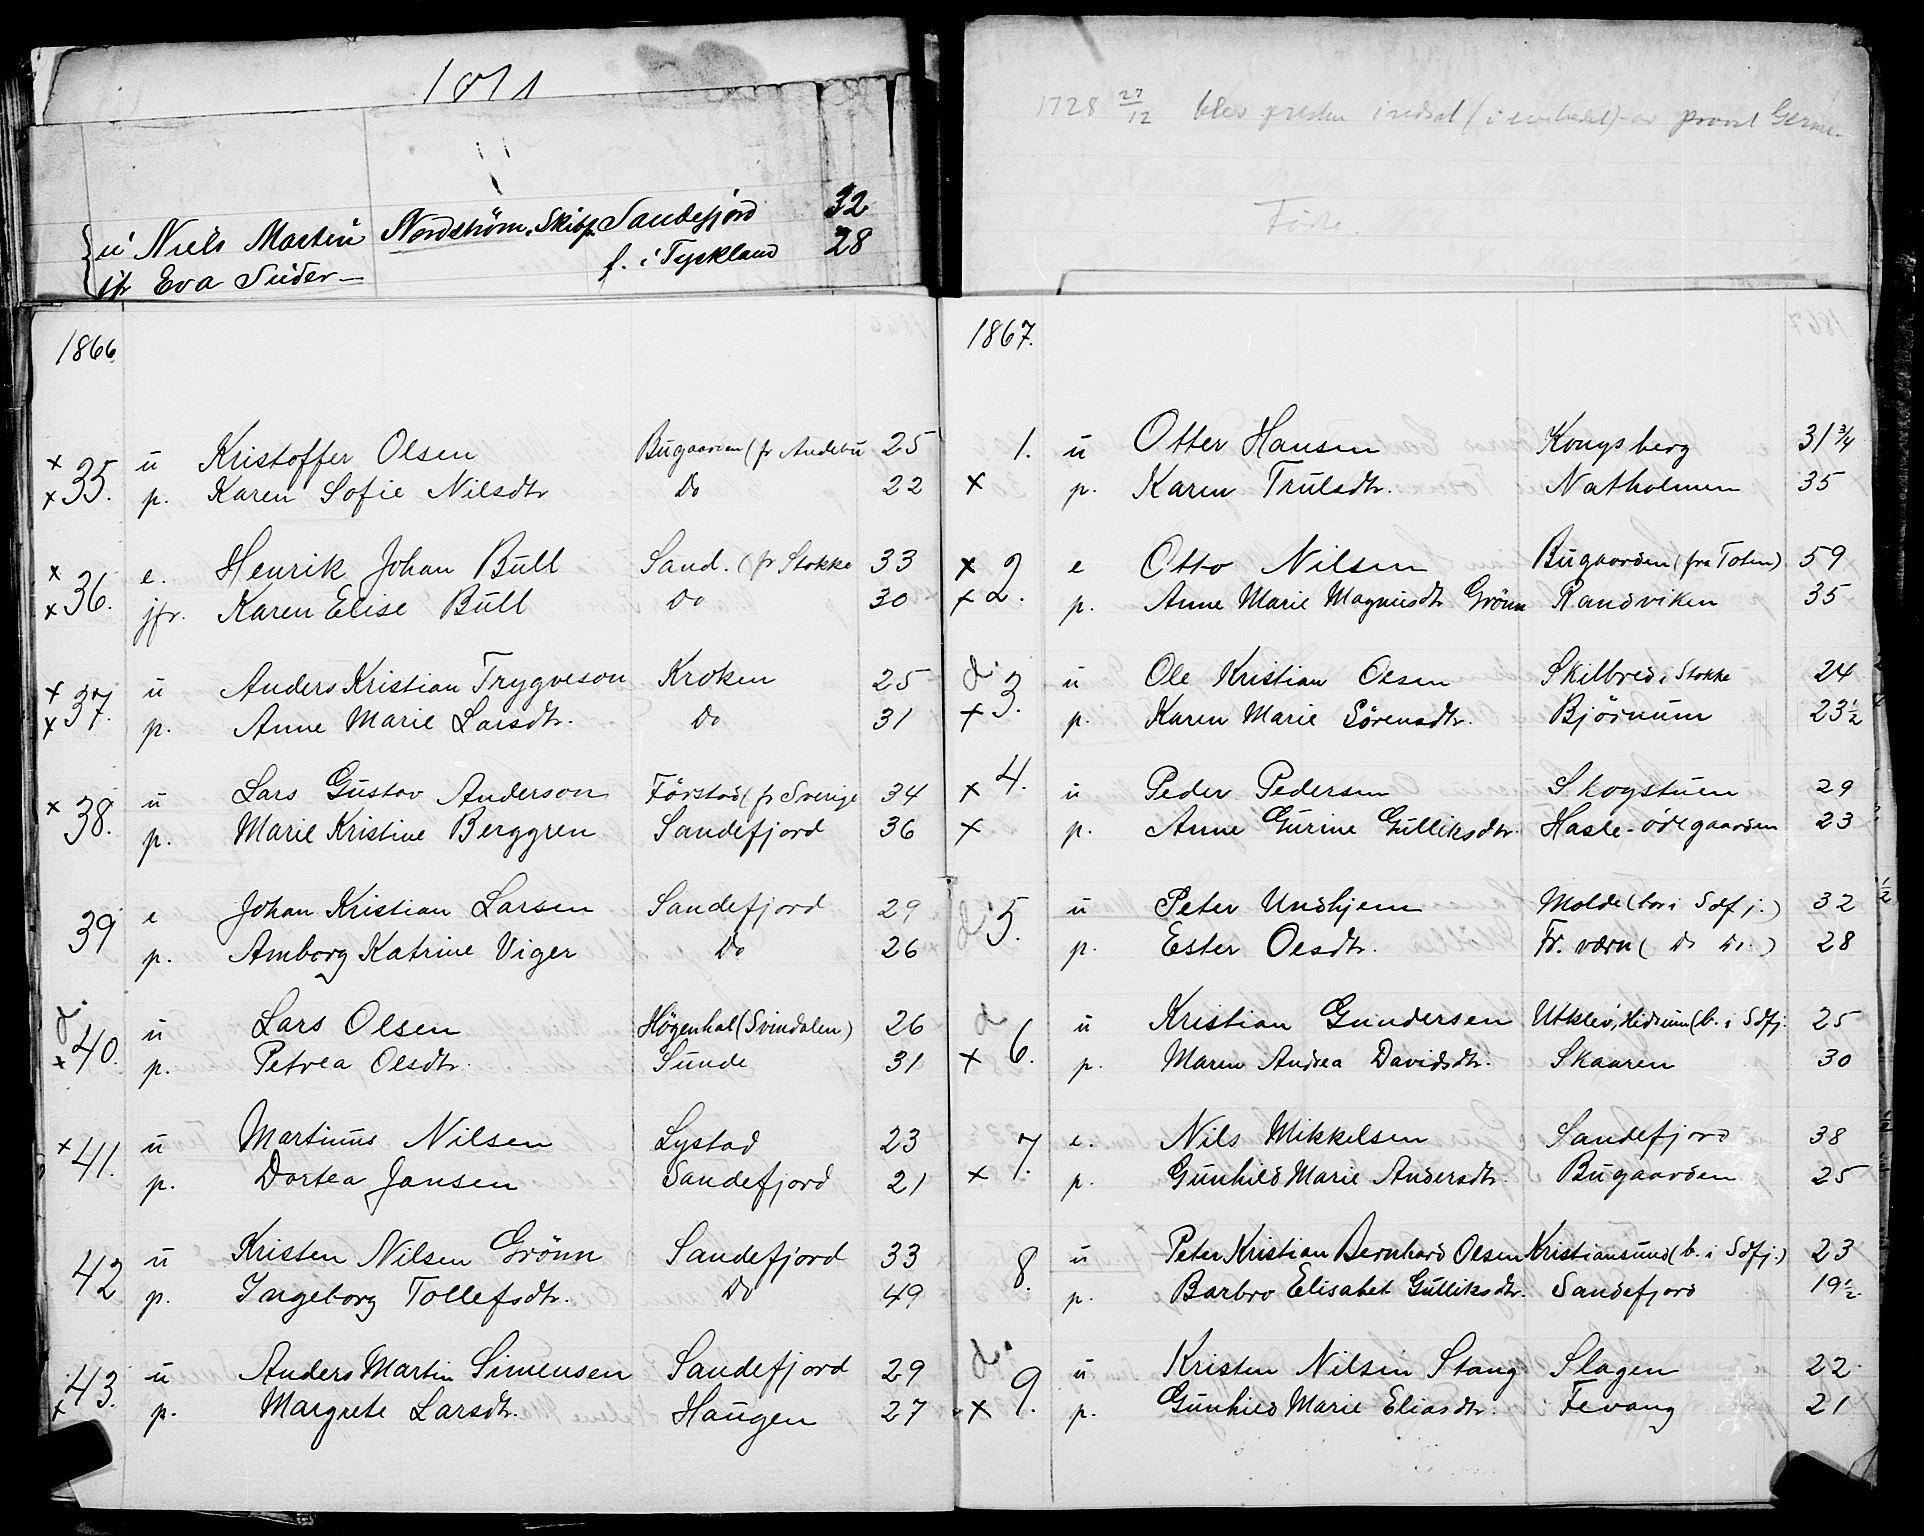 1871
u Niels Martin Nordström, Skibf. Sandefjord 32
jfr Eva Suder — f. i Tyskland 28
1866.
x u Kristoffer Olsen Bugaarden (fr Andebu 25
x 35. p. Karen Sofie Nilsdtr Do 22
x e. Henrik Johan Bull Sand. (fr Stokke 33
x 36. jfr. Karen Elise Bull Do 30
x u Anders Kristian Trygveson Kroken 25
x 37. p. Anne Marie Larsdtr. Do 31
x 38. u Lars Gustav Anderson Förstad (fr Sverige 34
p. Marie Kristine Berggren Sandefjord 36
39 e Johan Kristian Larsen Sandefjord 29
p. Amborg Katrine Viger Do 26
d. u Lars Olsen Högenhal (Svindalen) 26
x 40. p. Petrea Olsdtr. Sunde 31
x 41. u Martinus Nilsen Lystad 23
p. Dortea Jansen Sandefjord 21
42 u Kristen Nilsen Grönn Sandefjord 33
p. Ingeborg Tollefsdtr. Do 49
43. u Anders Martin Simensen Sandefjord 29
x p. Margrete Larsdtr. Haugen 27
1728 27/12 blev presten indsat (i embedet) av provst
Födte.
1867.
1. u Otter Hansen Kongsberg 31 3/4
x p. Karen Trulsdtr. Natholmen 35
x 2 e Otto Nilsen Bugaarden (fra Toten) 59
x 2. p. Anne Marie Magnusdtr Grönn Randviken 35
d. 3. u Ole Kristian Olsen Skilbred i Stokke 24
x p. Karen Marie Sörensdtr. Bjørnum 23 1/2
x 4. u Peder Pedersen Skogstuen 29
x p. Anne Gurine Gulliksdtr. Hasle-ödegaarden 23
d. 5. u Peter Undhjem Molde (bor i Sdfj.) 32 1/2
p. Ester Olsdtr. Fr. værn (Do Do.) 28
d 6. u Kristian Gundersen Utklev, Hedrum (b. i Sdfj. 25
x p. Maren Andrea Davidsdtr. Skaaren 30
7. e. Nils Mikkelsen Sandefjord 38
x p. Gunhild Marie Andersdtr. Bugaarden 25
8. u Peter Kristian Bernhard Olsen Kristiansund (b. i Sdfj.) 23
p. Barbro Elisabet Gulliksdtr. Sandefjord 19 1/2
d. 9. u Kristen Nilsen Stang Slagen 22
x p. Gunhild Marie Eliasdtr. Fevang 21